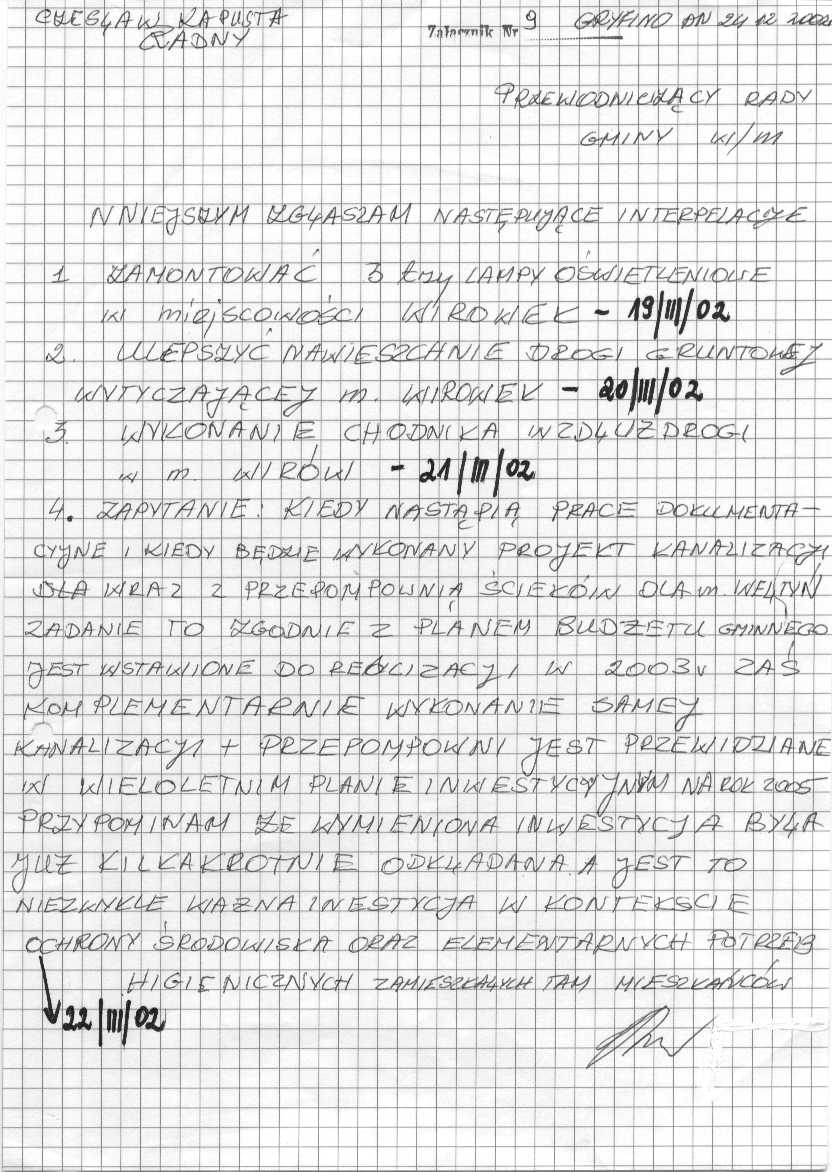 CZESŁAW KAPUSTA Załącznik Nr 9 GRYFINO DN 24 12 2002
RADNY
PRZEWODNICZĄCY RADY
GMINY W/M
NNIEJSZYM ZGŁASZAM NASTĘPUJĄCE INTERPELACJE
1 ZAMONTOWAĆ 3 trzy LAMPY OŚWIETLENIOWE
W miejscowości WIROWEK - 19/III/02
2. ULEPSZYĆ NAWIESZCHNIE DROGI GRUNTOWEJ
WYTYCZAJĄCEJ m. WIROWEK - 20/III/02
3. WYKONANIE CHODNIKA WZDŁUZ DROGI
W m. WIRÓW - 21/III/02
4. ZAPYTANIE: KIEDY NASTĄPIĄ PRACE DOKUMENTA-
CYJNE I KIEDY BĘDZIE WYKONANY PROJEKT KANALIZACJI
DLA WRAZ Z PRZEPOMPOWNIĄ ŚCIEKÓW DLA m. WEŁTYŃ
ZADANIE TO ZGODNIE Z PLANEM BUDŻETU GMINNEGO
JEST WSTAWIONE DO REALIZACJI W 2003 ZAŚ
KOMPLEMENTARNIE WYKONANIE SAMEJ
KANALIZACJI + PRZEPOMPOWNI JEST PRZEWIDZIANE
W WIELOLETNIM PLANIE INWESTYCYJNYM NA ROK 2005
PRZYPOMINAM ZE WYMIENIONA INWESTYCJA BYŁA
JUZ KILKAKROTNIE ODKŁADANA A JEST TO
NIEZWYKLE WAZNA INESTYCJA W KONTEKSCIE
OCHRONY ŚRODOWISKA ORAZ ELEMENTARNYCH POTRZEB
HIGIENICZNYCH ZAMIESZKAŁYCH TAM MIESZKAŃCÓW
22/III/02